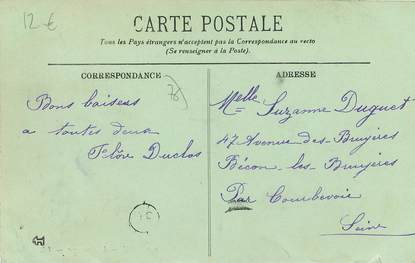 12 €
CARTE POSTALE
Tous les Pays étrangers n'acceptent pas la Correspondance au recto
(Se renseigner à la Poste).
CORRESPONDANCE
ADRESSE
78
Bons baisers
a toutes deux
Flore Duclos
Melle Suzanne Duguet
47 Avenue des Bruyères
Bécon les Bruyères
Par Courbevoie
Seine